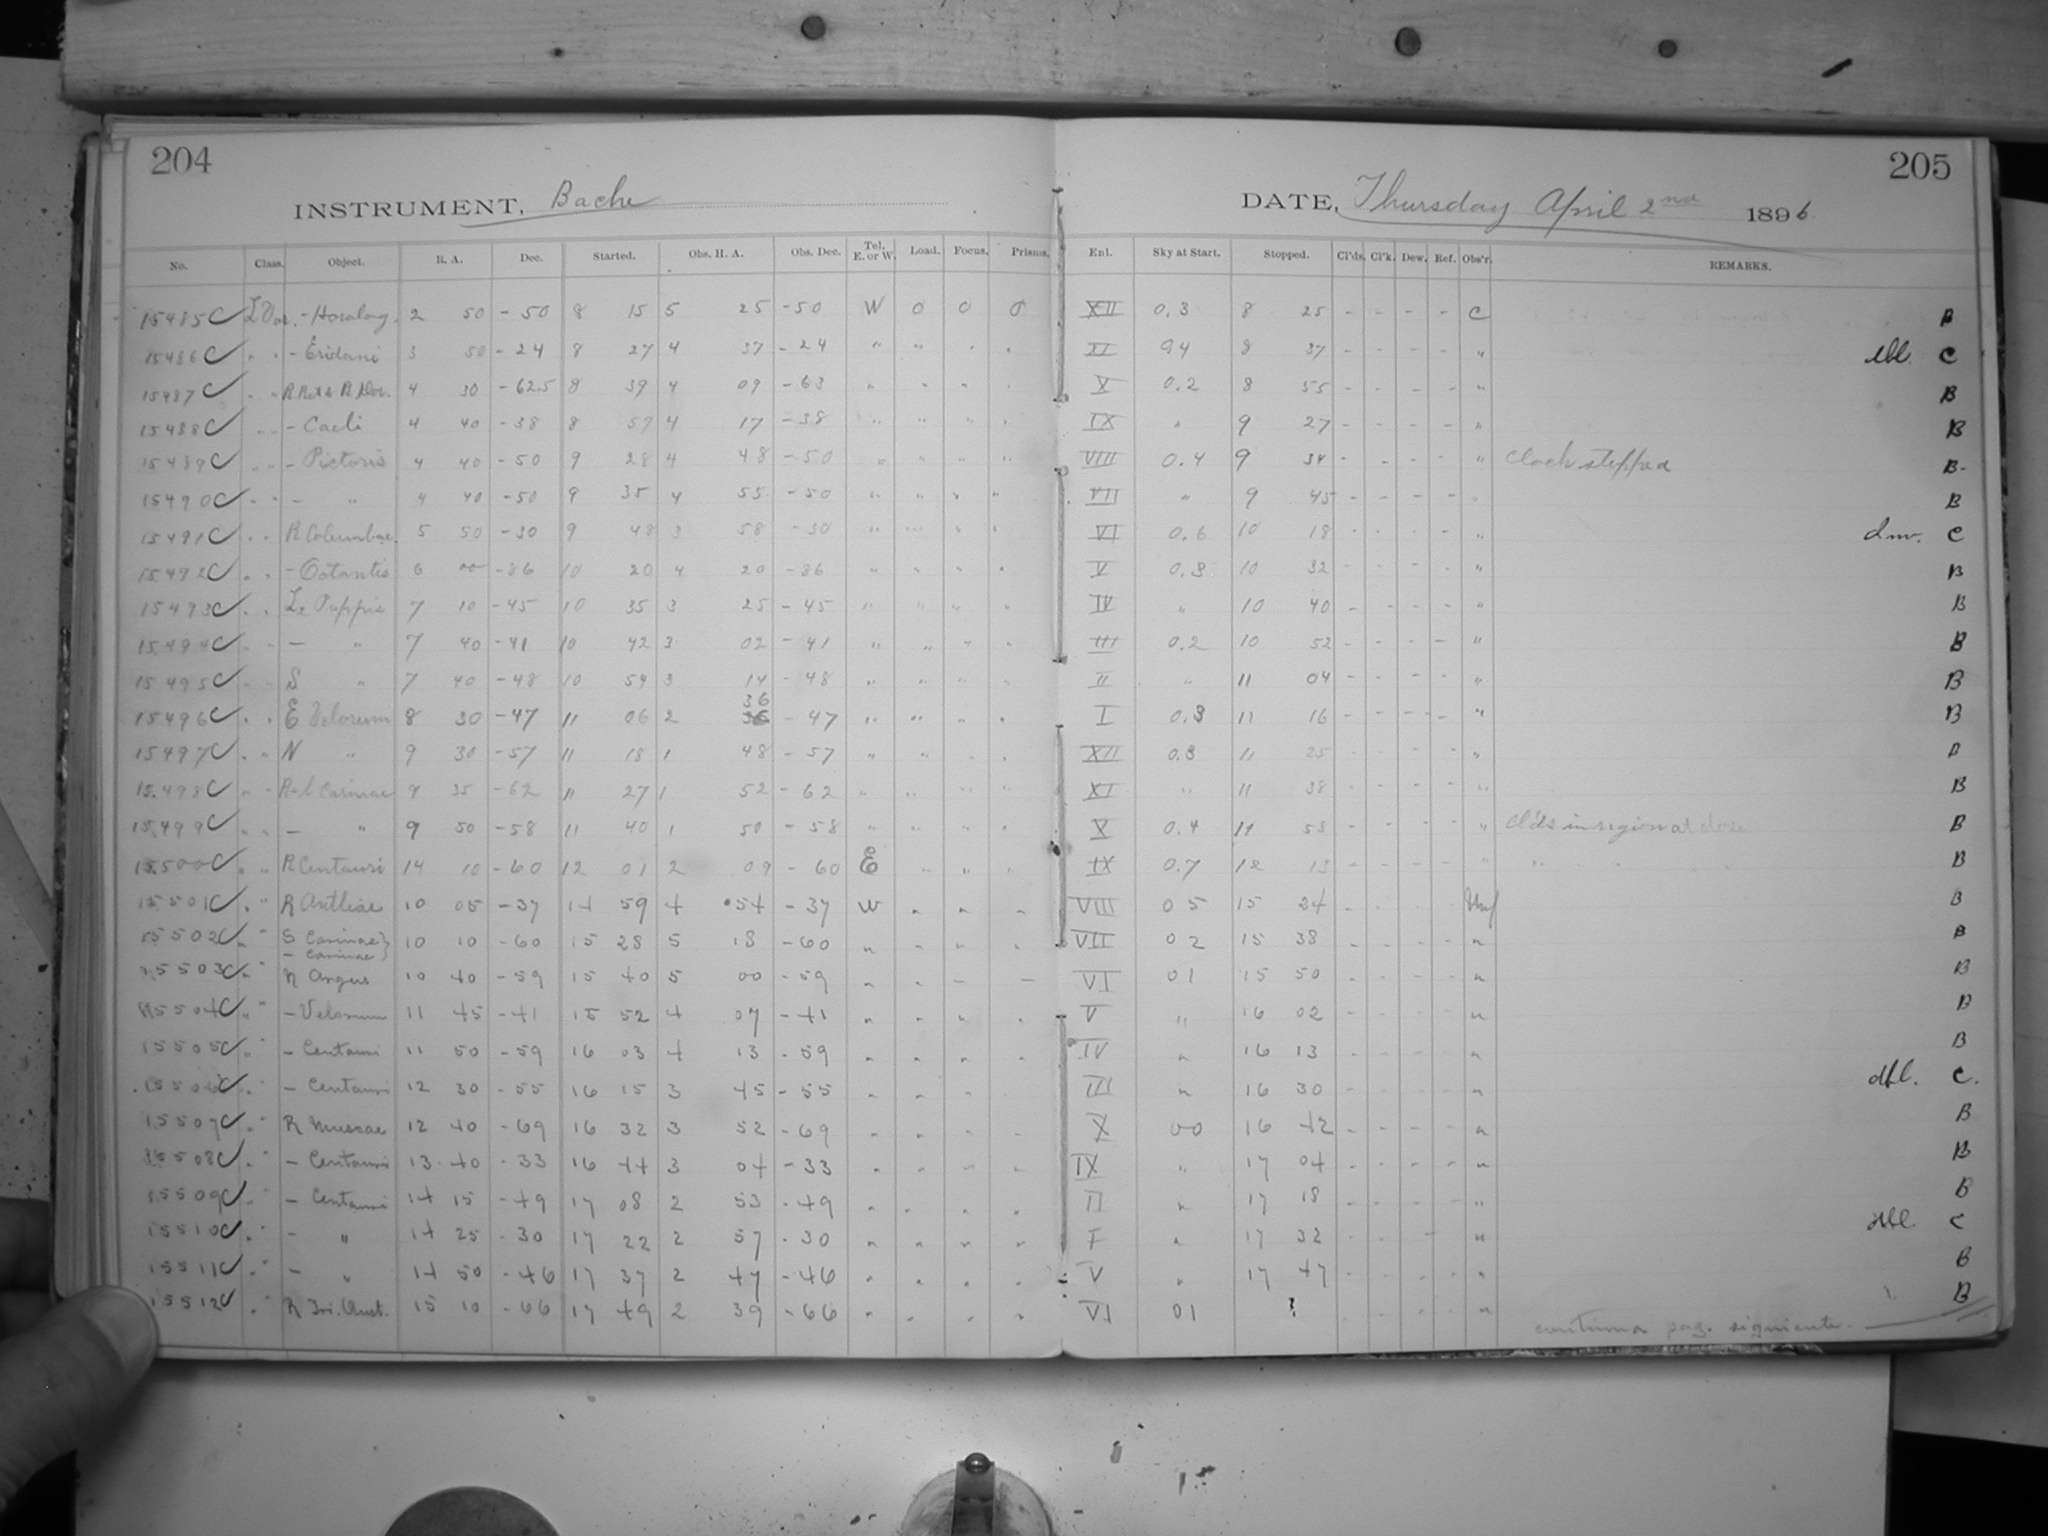 204
205
INSTRUMENT, Bache
DATE, Thursday April 2nd 1896
No. Class. Object. R. A. Dec. Started. Obs. H. A. Obs. Dec. Tel. E. or W. Load. Focus. Prisms. Enl. Sky at Start. Stopped. Cl'ds. Cl'k. Dew. Ref. Obs'r. REMARKS.
15485C L Var. - Horolog. 2 50 - 50 8 15 5 25 - 50 W 0 0 0 XII 0.3 8 25 - - - - C B
15486C " " - Eridani 3 50 - 24 8 27 4 37 - 24 " " " " XI 0.4 8 37 - - - - " C
15487C " " R Ret & R Dor. 4 30 - 62.5 8 39 4 09 - 63 " " " " V 0.2 8 55 - - - - " B
15488C " " - Caeli 4 40 - 38 8 57 4 17 - 38 " " " " IX " 9 27 - - - - " B
15489C " " - Pictoris 4 40 - 50 9 28 4 48 - 50 " " " " VIII 0.4 9 34 - - - - " Clock stopped B
15490C " " - " 4 40 - 50 9 35 4 55 - 50 " " " " VII " 9 45 - - - - " B
15491C " " R Columbae 5 50 - 30 9 48 3 58 - 30 " " " " VI 0.6 10 18 - - - - " C
15492C " " - Octantis 6 00 - 86 10 20 4 20 - 86 " " " " V 0.3 10 32 - - - - " B
15493C " " L2 Puppis 7 10 - 45 10 35 3 25 - 45 " " " " IV " 10 40 - - - - " B
15494C " " - " 7 40 - 41 10 42 3 02 - 41 " " " " III 0.2 10 52 - - - - " B
15495C " " S " 7 40 - 48 10 54 3 14 - 48 " " " " II " 11 04 - - - - " B
15496C " " E Velorum 8 30 - 47 11 06 2 36 - 47 " " " " I 0.3 11 16 - - - - " B
15497C " " N " 9 30 - 57 11 18 1 48 - 57 " " " " XII 0.3 11 25 - - - - " B
15498C " " R & l Carinae 9 35 - 62 11 27 1 52 - 62 " " " " XI " 11 38 - - - - " B
15499C " " - " 9 50 - 58 11 40 1 50 - 58 " " " " X 0.4 11 53 - - - - " Cl'ds in region at close B
15500C " " R Centauri 14 10 - 60 12 01 2 09 - 60 E " " " IX 0.7 12 13 - - - - " " B
15501C " " R Antliae 10 05 - 37 14 59 4 54 - 37 W " " " VIII 0 5 15 24 - - - - B
15502C " " S Carinae } 10 10 - 60 15 28 5 18 - 60 " " " " VII 0 2 15 38 - - - - " B
- Carinae }
15503C " " η Argus 10 40 - 59 15 40 5 00 - 59 " " - - VI 0 1 15 50 - - - - " B
15504C " " - Velorum 11 45 - 41 15 52 4 07 - 41 " " " " V " 16 02 - - - - " B
15505C " " - Centauri 11 50 - 59 16 03 4 13 - 59 " " " " IV " 16 13 - - - - " B
15506C " " - Centauri 12 30 - 55 16 15 3 45 - 55 " " " " III " 16 30 - - - - " dbl. C.
15507C " " R Muscae 12 40 - 69 16 32 3 52 - 69 " " " " X 00 16 42 - - - - " B
15508C " " - Centauri 13 40 - 33 16 44 3 04 - 33 " " " " IX " 17 04 - - - - " B
15509C " " - Centauri 14 15 - 49 17 08 2 53 - 49 " " " " II " 17 18 - - - - " B
15510C " " - " 14 25 - 30 17 22 2 57 - 30 " " " " " 17 32 - - - - " dbl. C
15511C " " - " 14 50 - 46 17 37 2 47 - 46 " " " " V " 17 47 - - - - " B
15512C " " R Tri. Aust. 15 10 - 66 17 49 2 39 - 66 " " " " VI 01 ? - - - - " B
continua pag. siguiente.